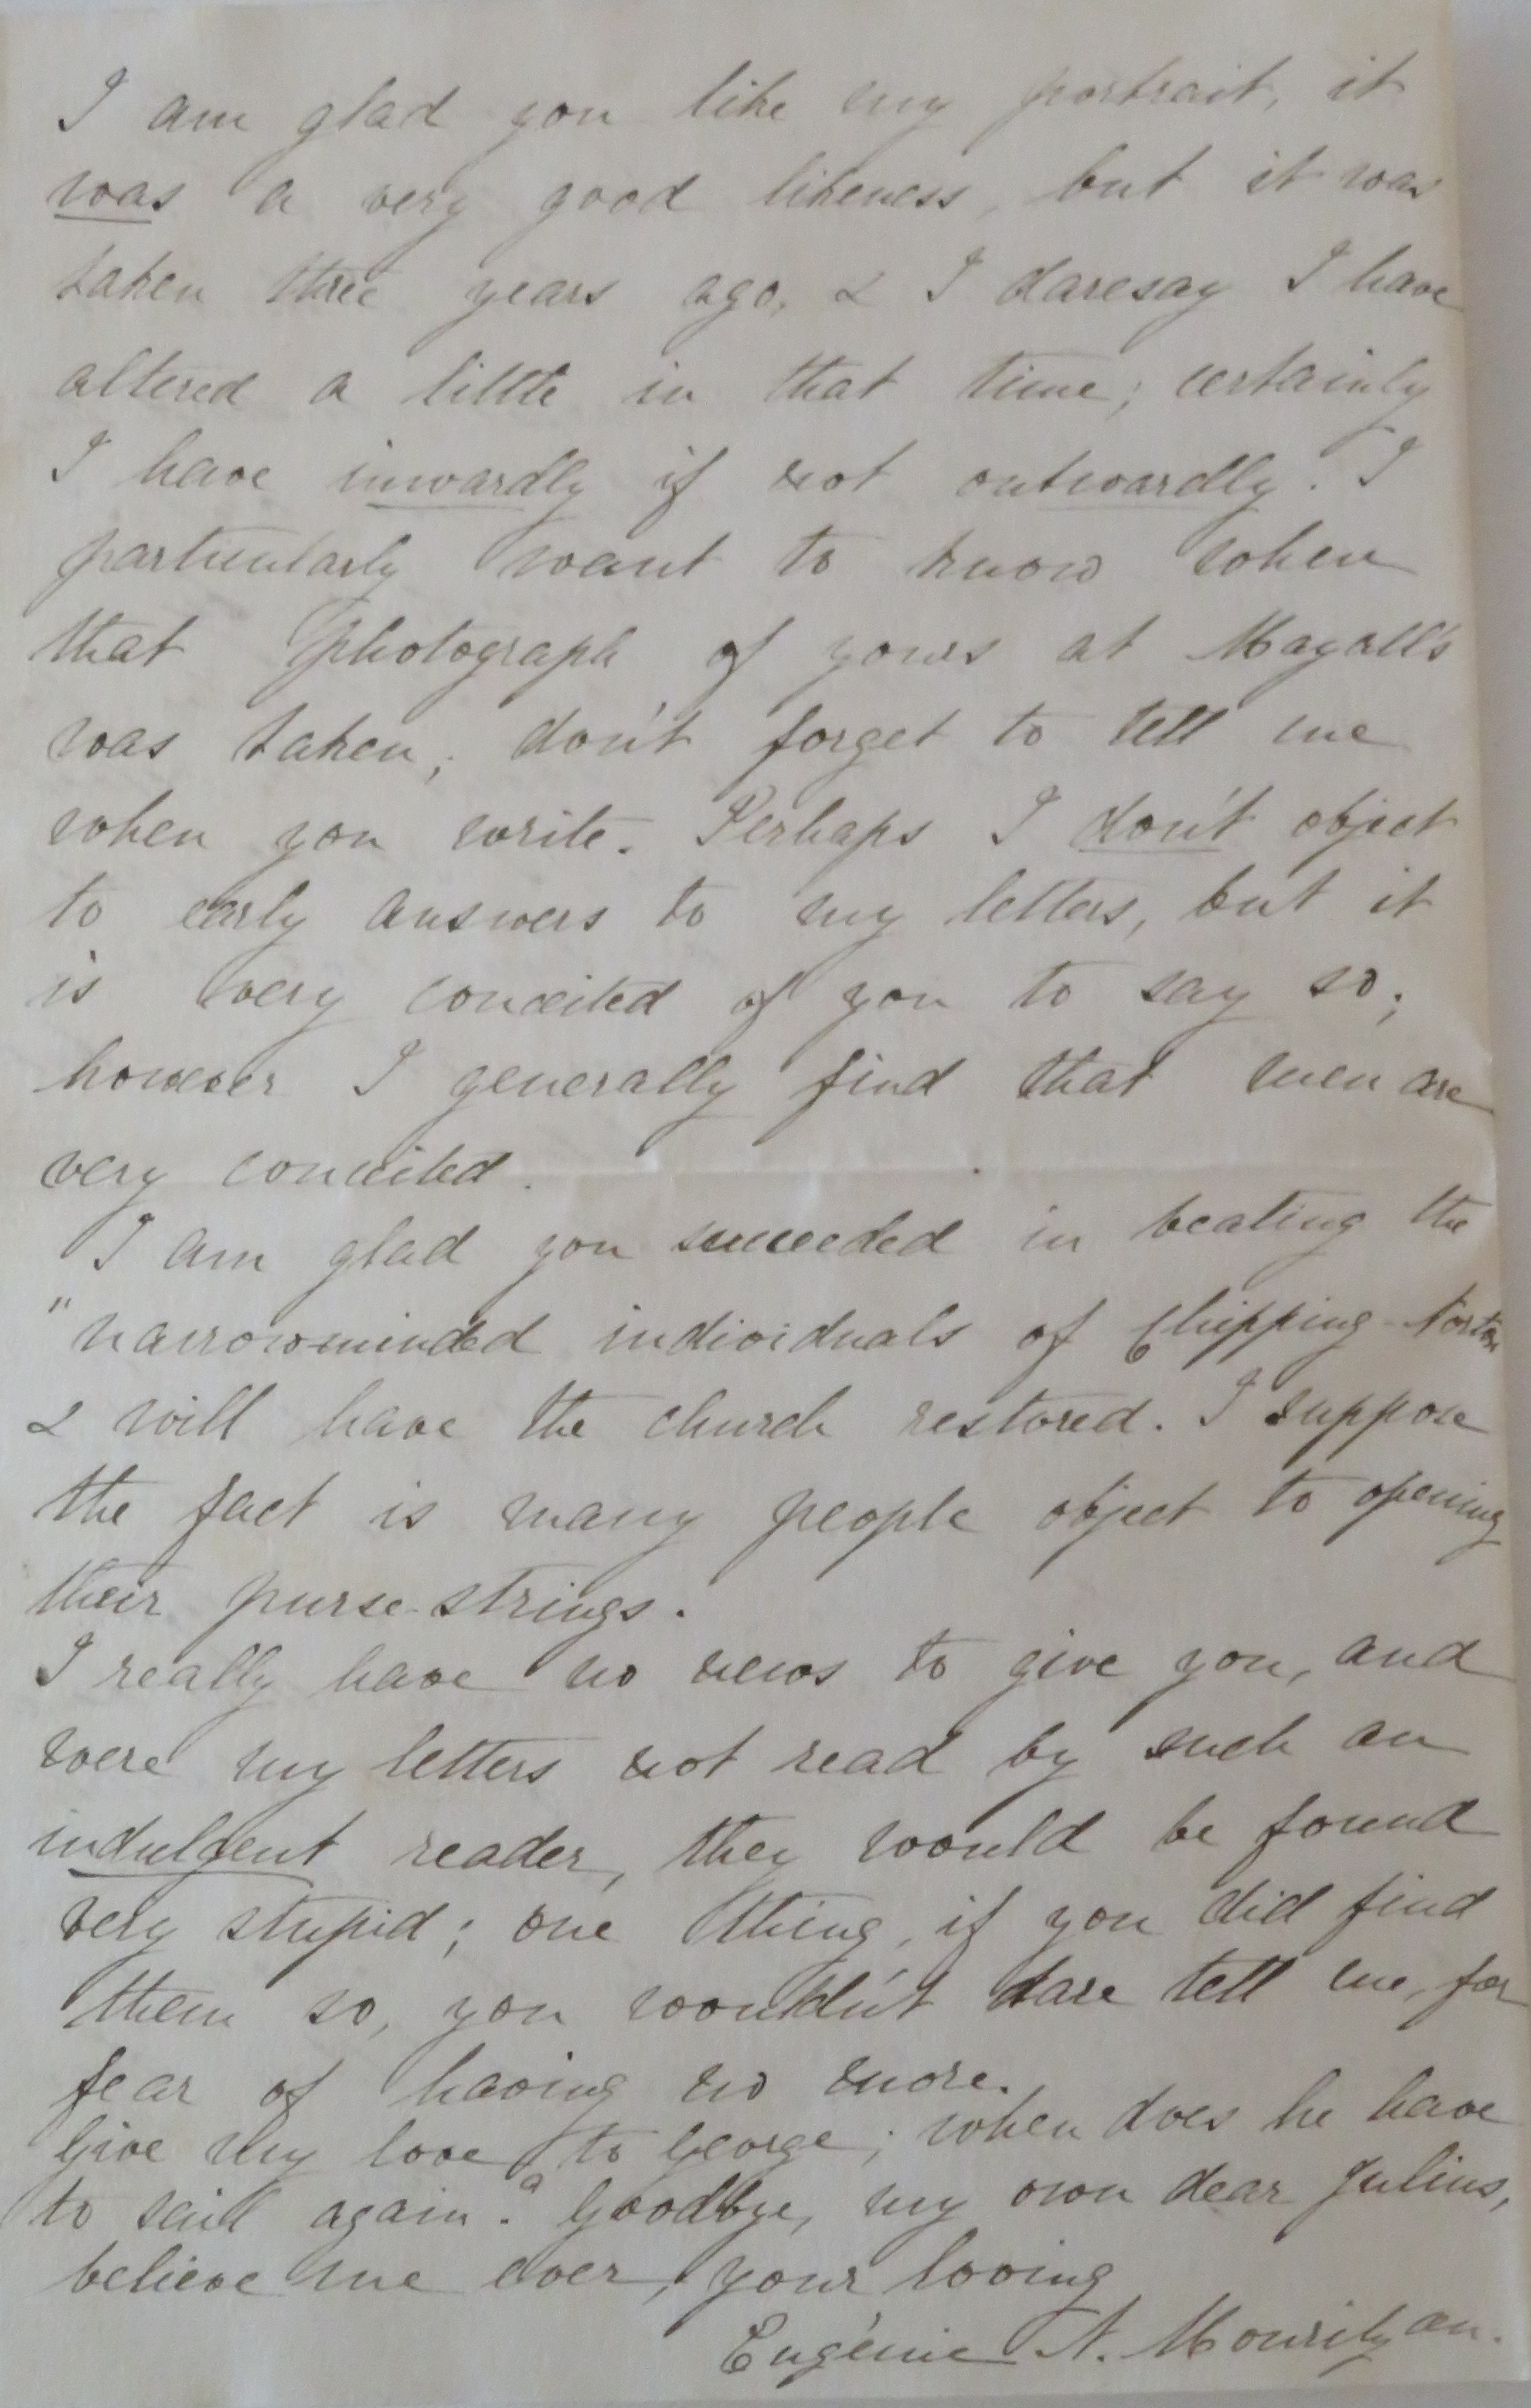 I am glad you like my portrait, it
was a very good likeness, but it was
taken three years ago, & I daresay I have
altered a little in that time; certainly
I have inwardly if not outwardly. I
particularly want to know when
that photograph of yours at Mayall's
was taken; don't forget to tell me
when you write. Perhaps I don't object
to early answers to my letters, but it
is very conceited of you to say so;
however I generally find that men are
very conceited.
I am glad you succeeded in beating the
"narrowminded individuals of Chipping-Norton
& will have the church restored. I suppose
the fact is many people object to opening
their purse-strings.
I really have no news to give you, and
were my letters not read by such an
indulgent reader, they would be found
very stupid; one thing, if you did find
them so, you wouldn't dare tell me, for
fear of having no more.
Give my love to George; when does he have
to sail again? Goodbye, my own dear Julius,
believe me ever, your loving
Eugénie A. Mouritzan.